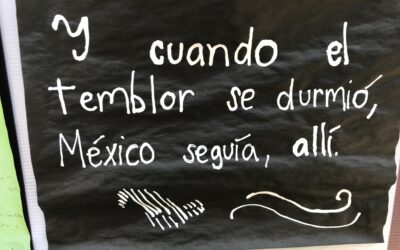 Y cuando el
temblor se durmió,
México seguía, allí.